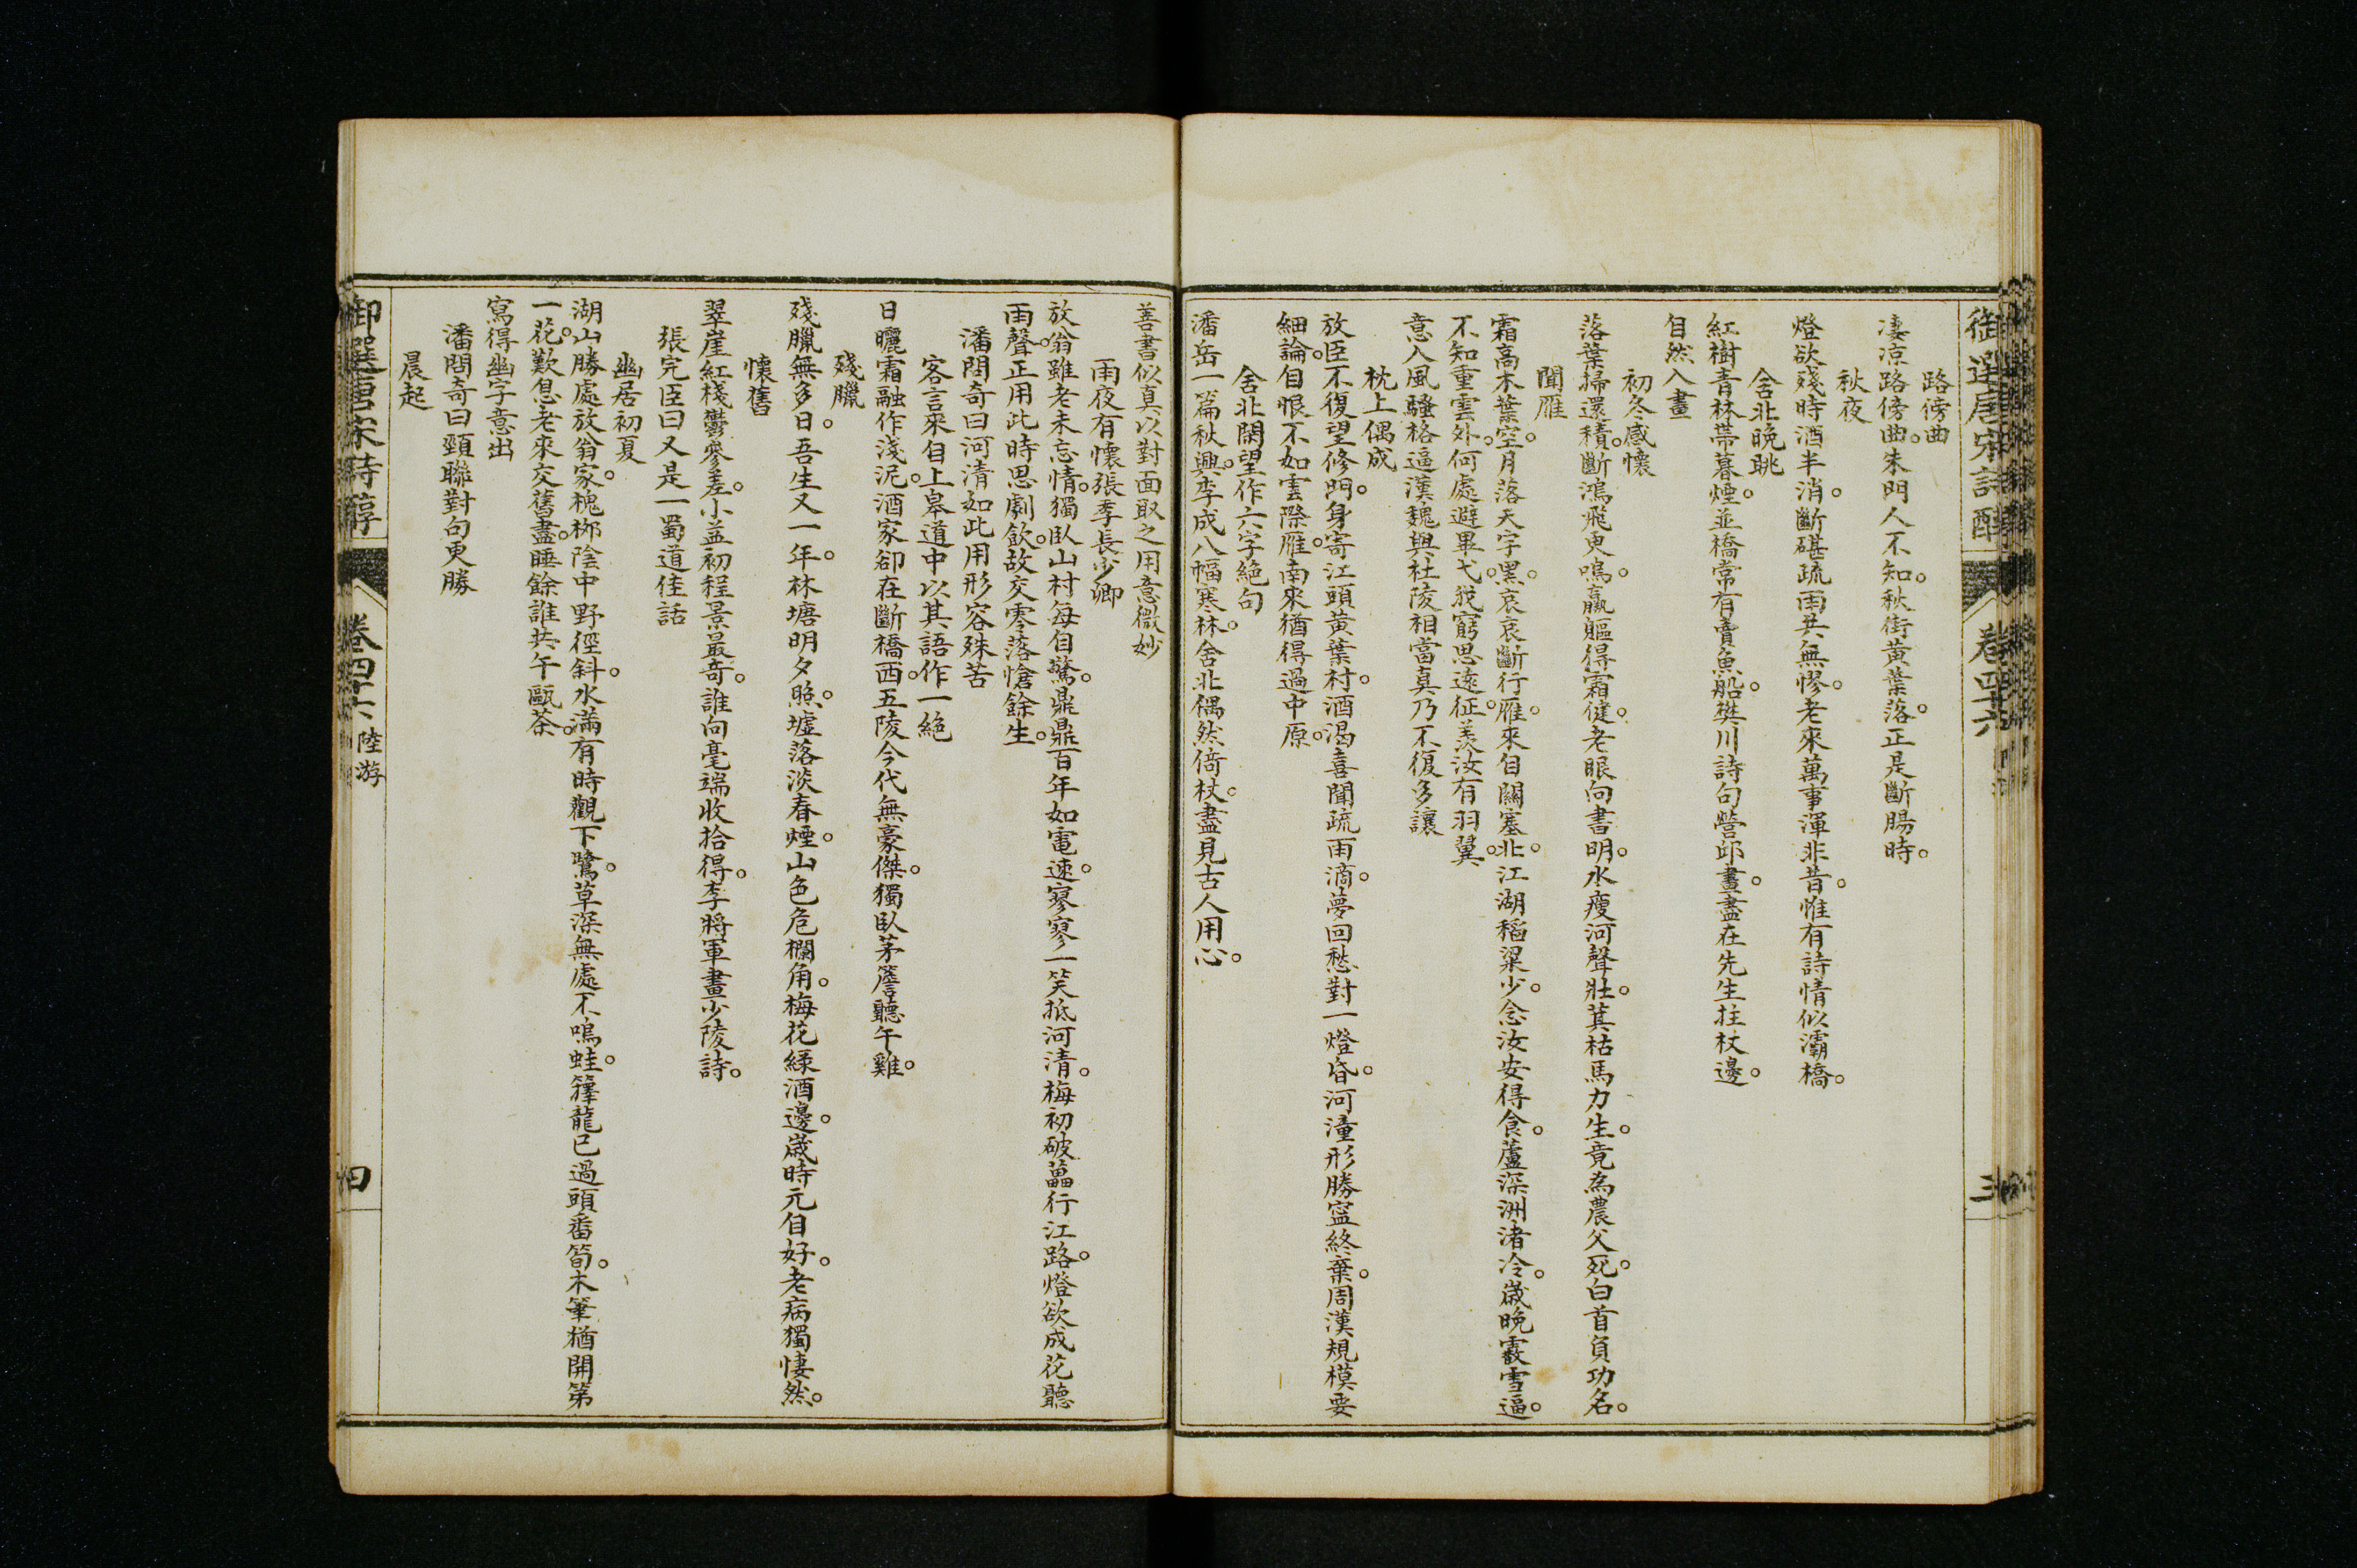 御選唐宋詩醇 卷四十六 三
路傍曲
淒凉路傍曲。朱門人不知。秋街黃葉落。正是斷腸時。
秋夜
燈欲殘時酒半消。斷碪疏雨共無憀。老來萬事渾非昔。惟有詩情似灞橋。
舍北晚眺
紅樹青林帶暮煙。並橋常有賣魚船。樊川詩句營邱畫。盡在先生拄杖邊。
自然入畫
初冬感懷
落葉掃還積。斷鴻飛更鳴。羸軀得霜健。老眼向書明。水瘦河聲壯。萁枯馬力生。竟為農父死。白首負功名。
聞雁
霜高木葉空。月落天宇黑。哀哀斷行雁。來自關塞北。江湖稻粱少。念汝安得食。蘆深洲渚冷。歲晚霰雪逼。
不知重雲外。何處避畢弋。我窮思遠征。羨汝有羽翼。
意入風騷格逼漢魏與杜陵相當真乃不復多讓
枕上偶成
放臣不復望修門。身寄江頭黃葉村。酒渴喜聞疏雨滴。夢回愁對一燈昏。河潼形勝寧終棄。周漢規模要
細論。自恨不如雲際雁。南來猶得過中原。
舍北閑望作六字絕句
潘岳一篇秋興。李成八幅寒林。舍北偶然倚杖。盡見古人用心。
善書似真以對面取之用意微妙
雨夜有懷張季長少卿
放翁雖老未忘情。獨臥山村每自驚。鼎鼎百年如電速。寥寥一笑抵河清。梅初破蕾行江路。燈欲成花聽
雨聲。正用此時思劇飲。故交零落愴餘生。
潘問奇曰河清如此用形容殊苦
客言來自上皋道中以其語作一絕
日曬霜融作淺泥。酒家卻在斷橋西。五陵今代無豪傑。獨臥茅簷聽午雞。
殘臘
殘臘無多日。吾生又一年。林塘明夕照。墟落淡春煙。山色危欄角。梅花綠酒邊。歲時元自好。老病獨悽然。
懷舊
翠崖紅棧鬱參差。小益初程景最奇。誰向毫端收拾得。李將軍畫少陵詩。
張完臣曰又是一蜀道佳話
幽居初夏
湖山勝處放翁家。槐柳陰中野徑斜。水滿有時觀下鷺。草深無處不鳴蛙。籜龍已過頭番筍。木筆猶開第
一花。歎息老來交舊盡。睡餘誰共午甌茶。
寫得幽字意出
潘問奇曰頸聯對句更勝
晨起
御選唐宋詩醇 卷四十六 陸游 四